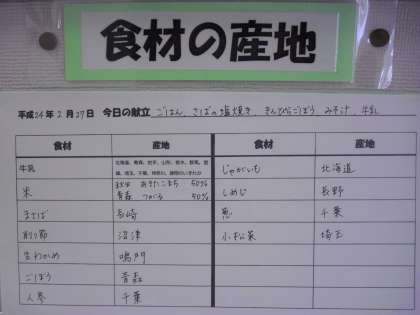 食材の産地
平成24年2月27日 今日の献立 ごはん、さばの塩焼き、きんぴらごぼう、みそ汁、牛乳
食材 産地 食材 産地
牛乳 じゃがいも 北海道
米 秋田 あきたこまち 50%
青森 つがる 50% しめじ 長野
まさば 長崎 葱 千葉
削り節 沼津 小松菜 埼玉
生わかめ 鳴門
ごぼう 青森
人参 千葉